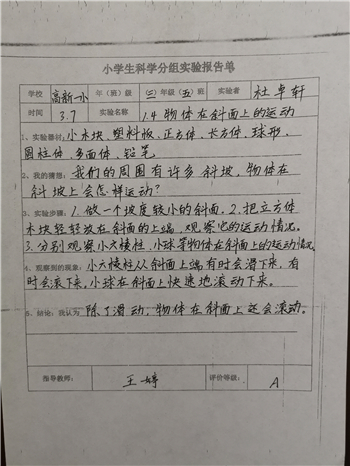 小学生科学分组实验报告单
学校 高新一小 年（班）级 （三）年级（五）班 实验者 杜卓轩
时间 3.7 实验名称 1.4 物体在斜面上的运动
1、实验器材：小木块、塑料板、正方体、长方体、球形、
圆柱体、多面体、铅笔
2、我的猜想：我们的周围有许多斜坡，物体在
斜坡上会怎样运动？
3、实验步骤：1.做一个坡度较小的斜面，2.把立方体
木块轻轻放在斜面的上端，观察它的运动情况。
3.分别观察小六棱柱、小球等物体在斜面上的运动情况。
4、观察到的现象：小六棱柱从斜面上端有时会滑下来，有
时会滚下来。小球在斜面上快速地滚动下来。
5、结论：我认为 除了滑动，物体在斜面上还会滚动。
指导教师： 王婷 评价等级： A